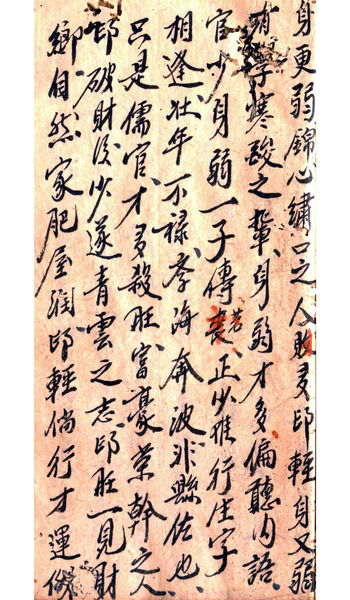 身更弱錦心繡口之人財多印輕身又弱
有字寒酸之輩身弱才多偏聽內語
官少身弱一子傳芳正少推行庄字
相逢壯年不祿孝海奔波非縣佐也
只是儒官才多殺旺富豪業幹之人
印破財後少遂青雲之志印旺一見財
鄉自然家肥屋潤印輕倘行才運似